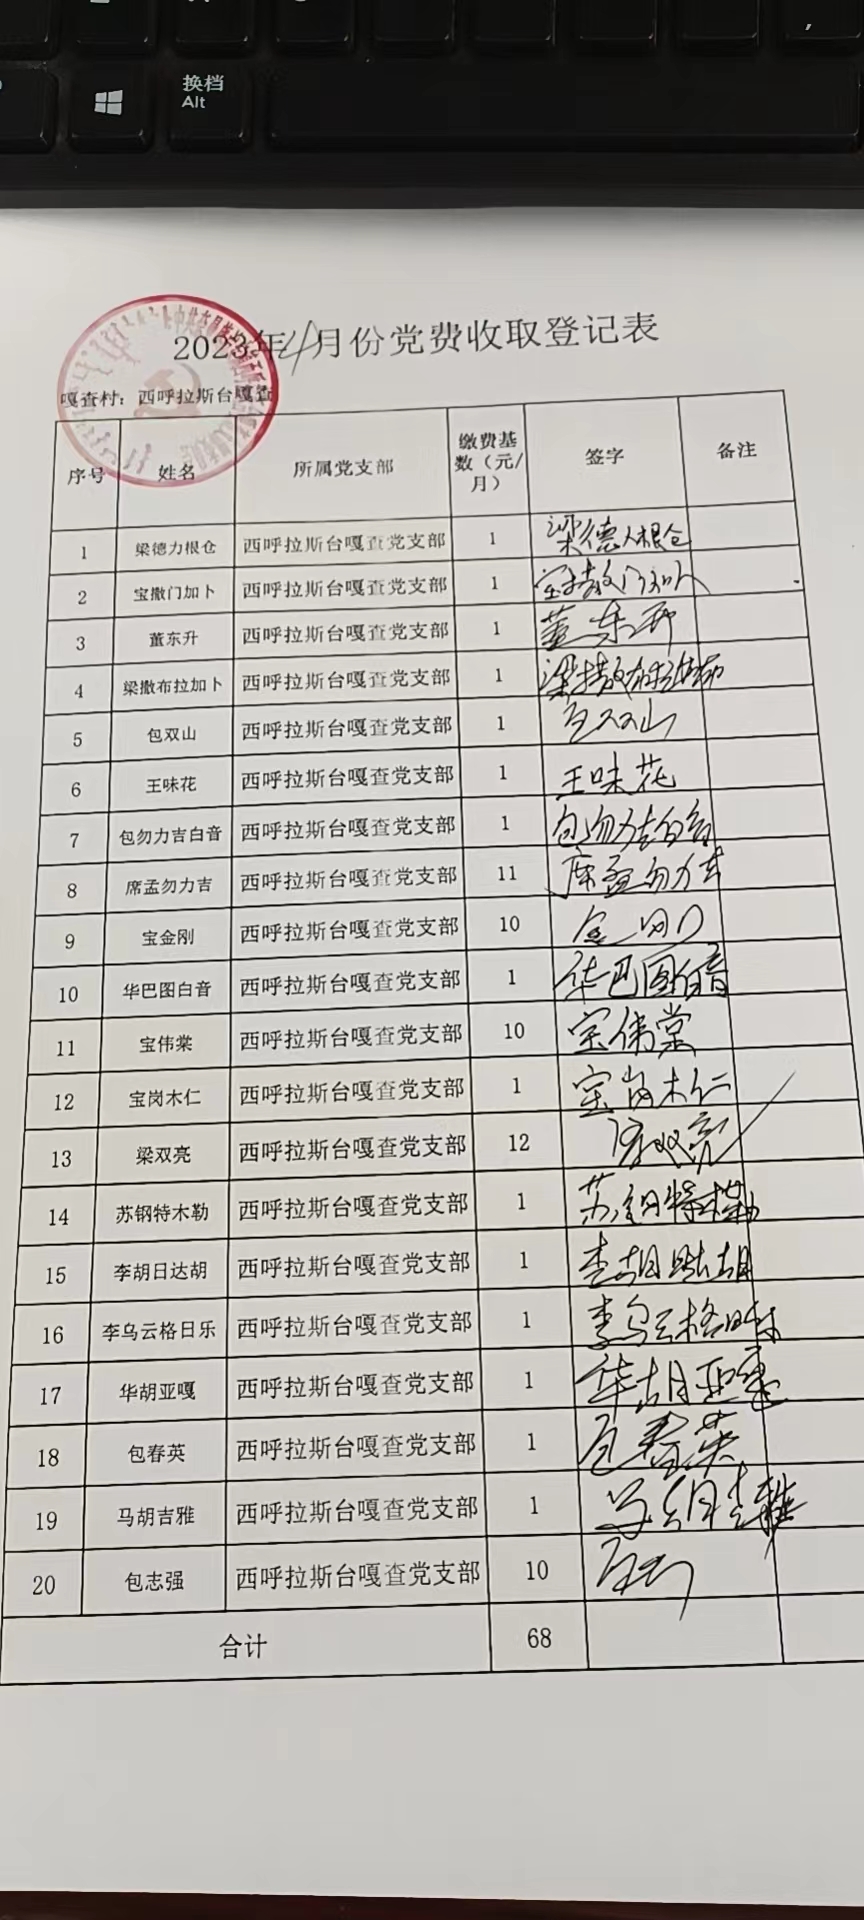 换档
Alt
2023年4月份党费收取登记表
嘎查村：西呼拉斯台嘎查
序号 姓名 所属党支部 缴费基数（元/月） 签字 备注
1 梁德力根仓 西呼拉斯台嘎查党支部 1 梁德力根仓
2 宝撒门加卜 西呼拉斯台嘎查党支部 1 宝撒门加卜
3 董东升 西呼拉斯台嘎查党支部 1 董东升
4 梁撒布拉加卜 西呼拉斯台嘎查党支部 1 梁撒布拉加卜
5 包双山 西呼拉斯台嘎查党支部 1 包双山
6 王味花 西呼拉斯台嘎查党支部 1 王味花
7 包勿力吉白音 西呼拉斯台嘎查党支部 1 包勿力吉白音
8 席孟勿力吉 西呼拉斯台嘎查党支部 11 席孟勿力吉
9 宝金刚 西呼拉斯台嘎查党支部 10 金刚
10 华巴图白音 西呼拉斯台嘎查党支部 1 华巴图白音
11 宝伟棠 西呼拉斯台嘎查党支部 10 宝伟棠
12 宝岗木仁 西呼拉斯台嘎查党支部 1 宝岗木仁
13 梁双亮 西呼拉斯台嘎查党支部 12 梁双亮
14 苏钢特木勒 西呼拉斯台嘎查党支部 1 苏钢特木勒
15 李胡日达胡 西呼拉斯台嘎查党支部 1 李胡日达胡
16 李乌云格日乐 西呼拉斯台嘎查党支部 1 李乌云格日乐
17 华胡亚嘎 西呼拉斯台嘎查党支部 1 华胡亚嘎
18 包春英 西呼拉斯台嘎查党支部 1 包春英
19 马胡吉雅 西呼拉斯台嘎查党支部 1 马胡吉雅
20 包志强 西呼拉斯台嘎查党支部 10
合计 68